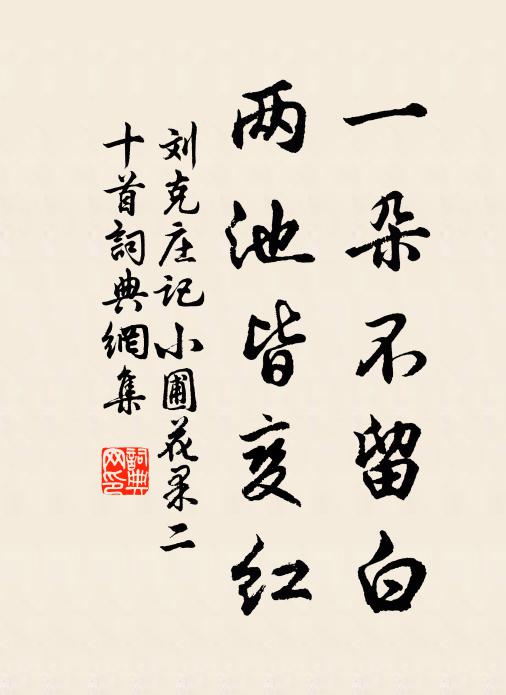 一朵不留白
两池皆变红
刘克庄记小圃花果二
十首詞典網集
詞典
网印